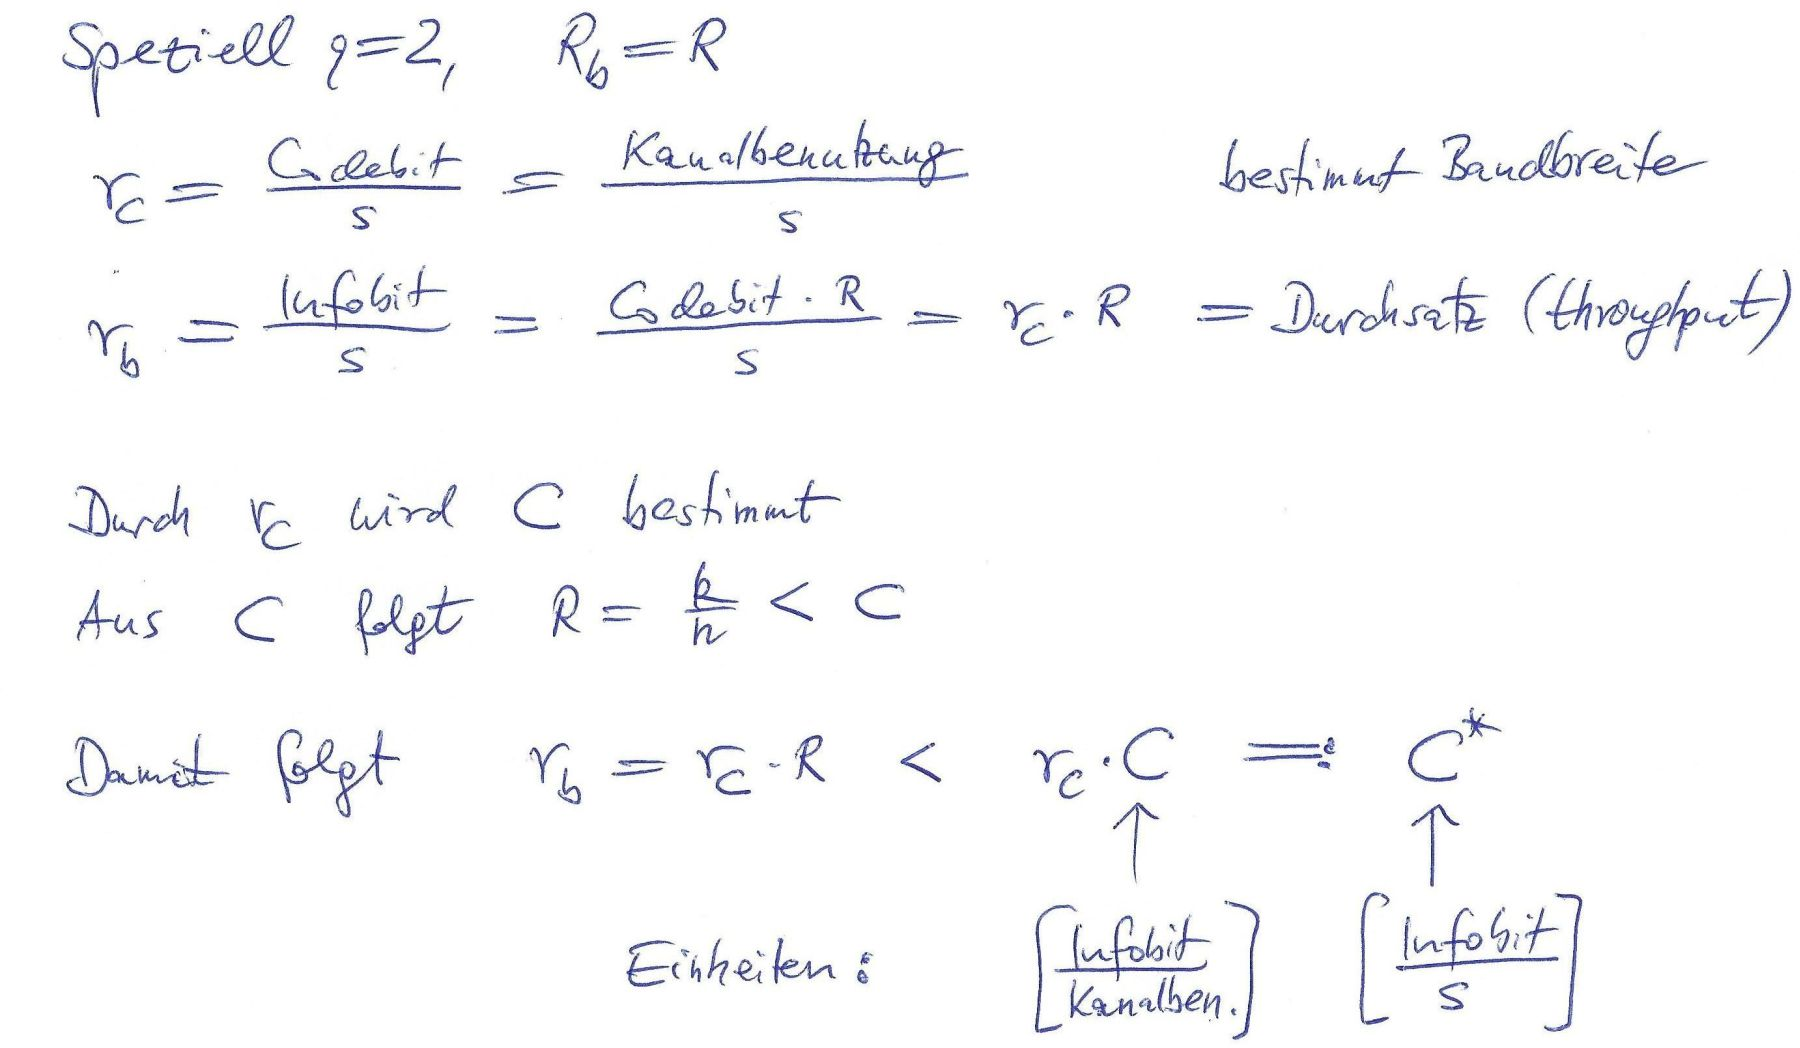 Speziell q=2, R_b = R
r_c = Codebit/s = Kanalbenutzung/s bestimmt Bandbreite
r_b = Infobit/s = Codebit · R/s = r_c · R = Durchsatz (throughput)
Durch r_c wird C bestimmt
Aus C folgt R = k/n < C
Damit folgt r_b = r_c · R < r_c · C =: C*
↑ ↑
Einheiten: [Infobit/Kanalben.] [Infobit/s]